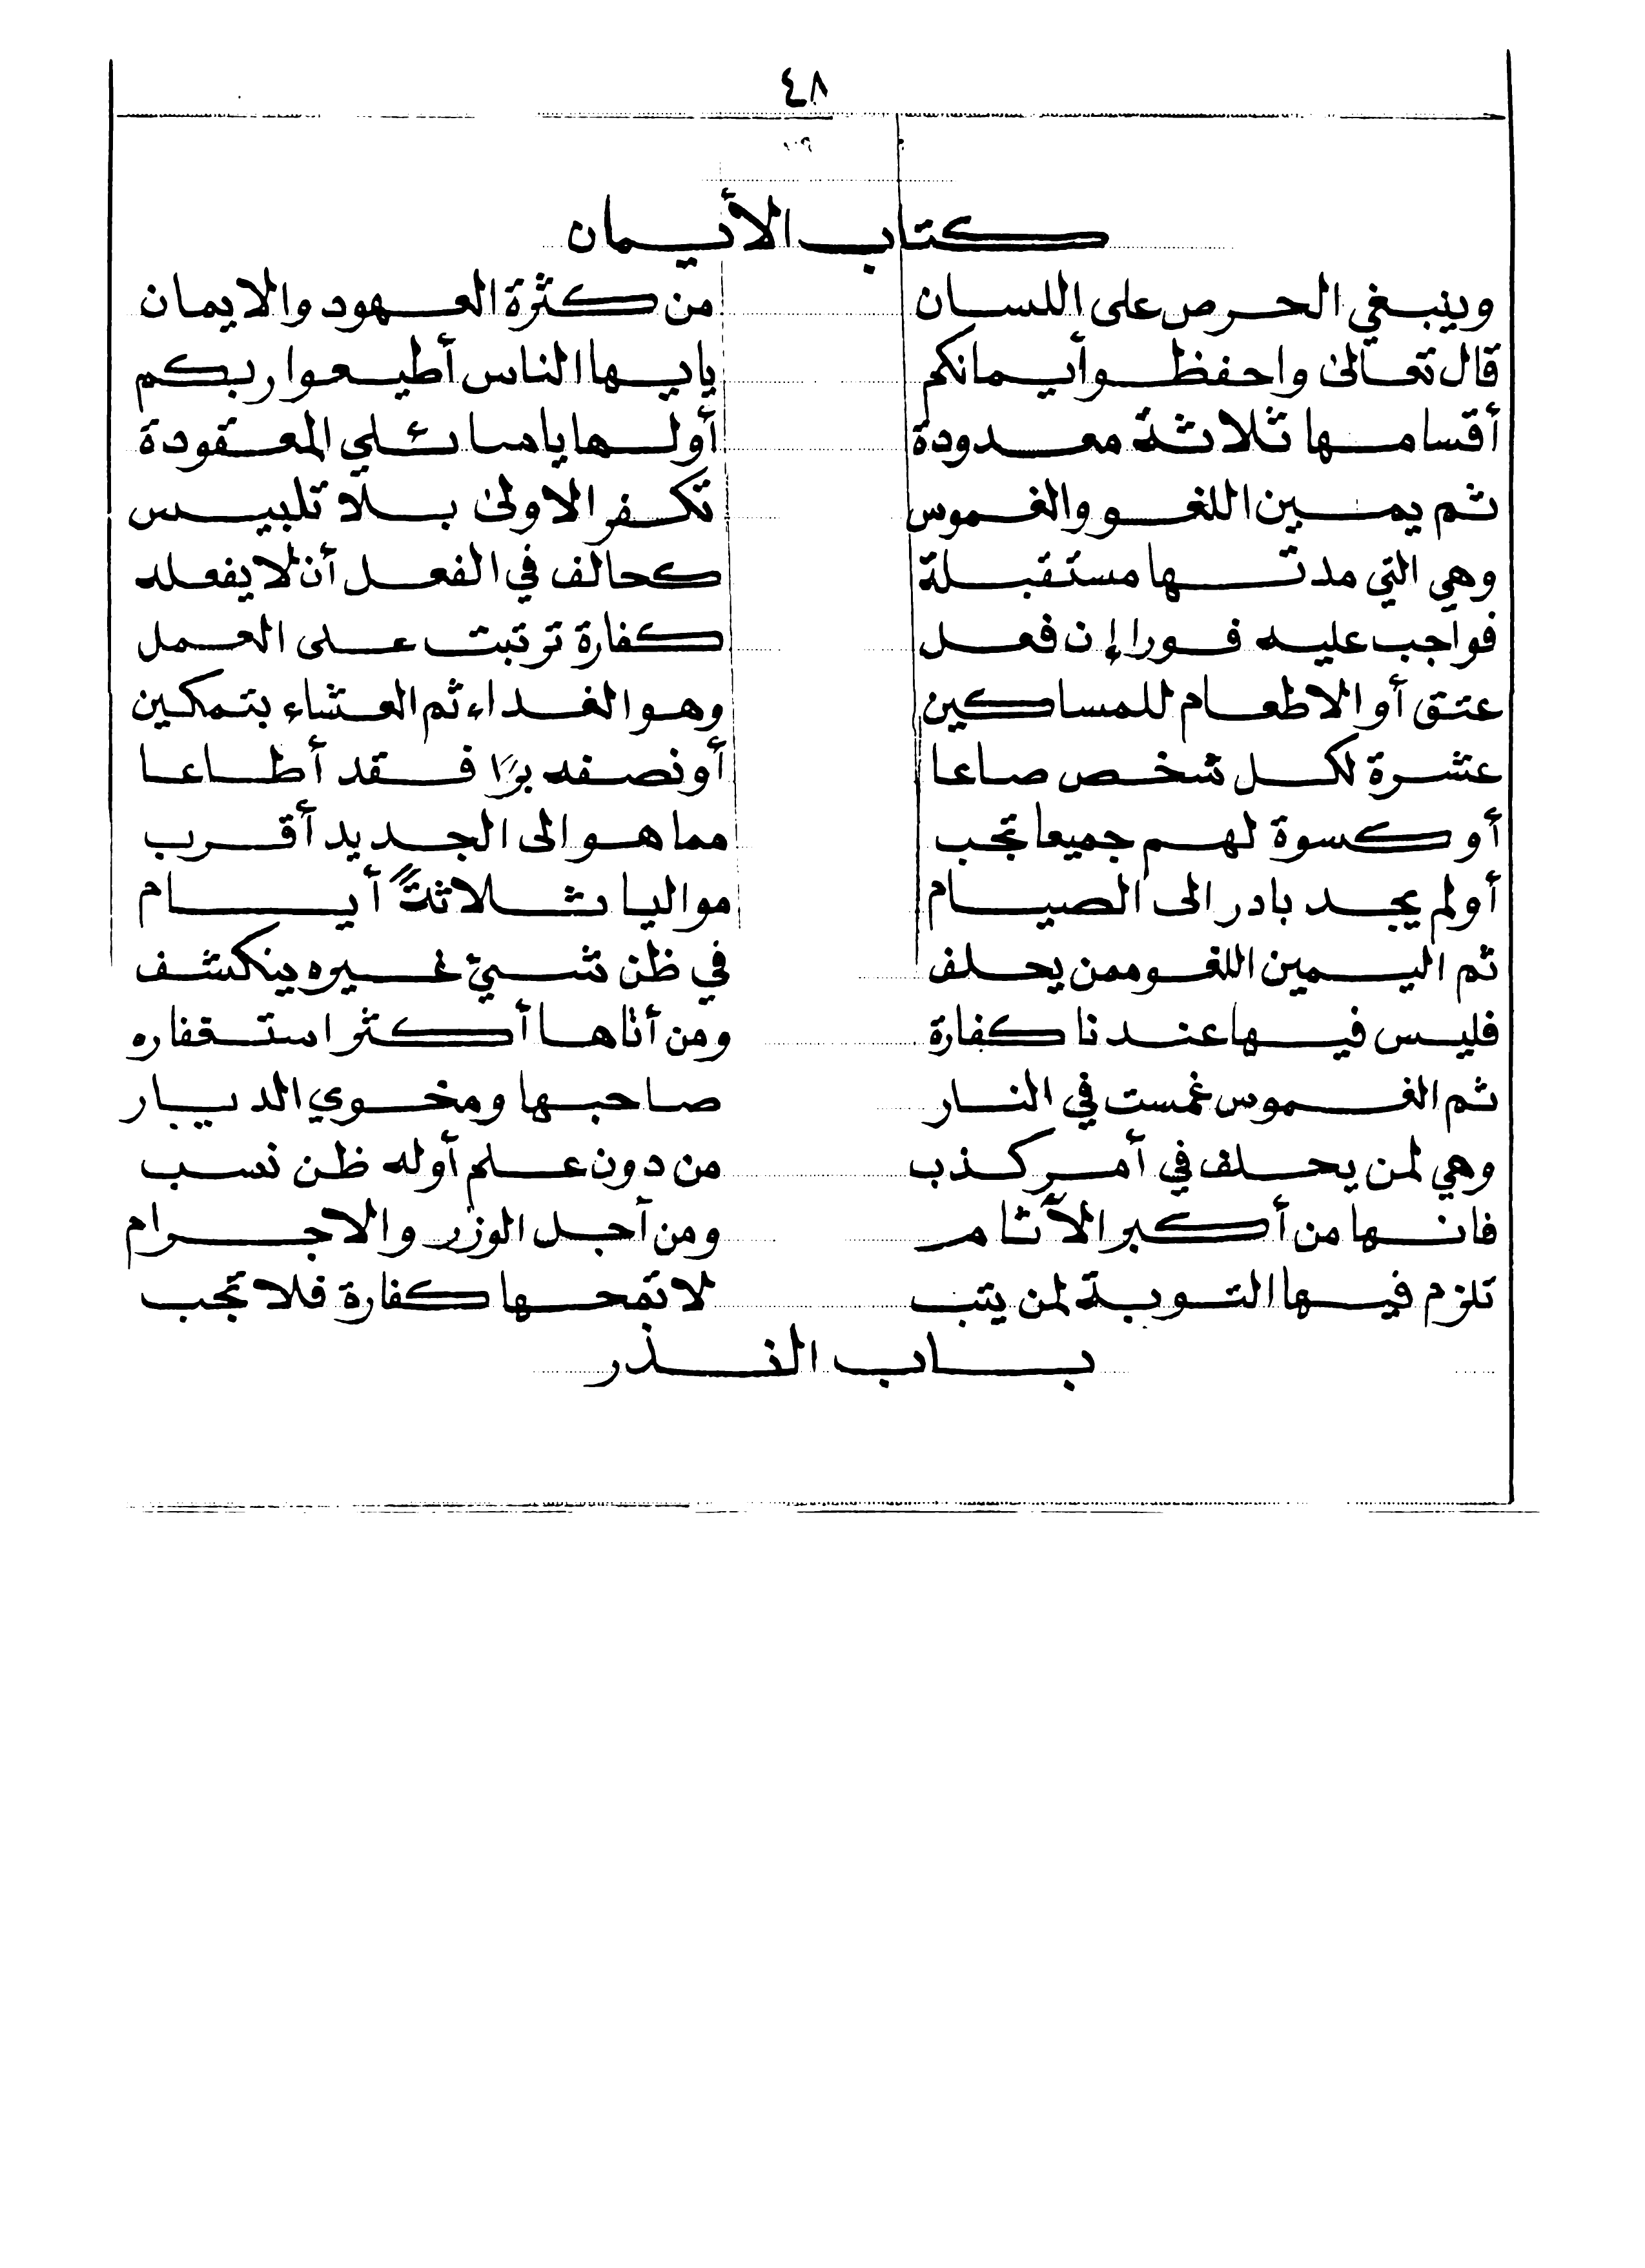 ٤٨
كتاب الأيمان
وينبغي الحرص على اللسان من كثرة العهود والايمان
قال تعالى واحفظوا أيمانكم يايها الناس أطيعوا ربكم
أقسامها ثلاثة معدودة أولها ياسائلي المعقودة
ثم يمين اللغو والغموس تكفر الاولى بلا تلبيس
وهي التي مدتها مستقبلة كحالف في الفعل أن لا يفعله
فواجب عليه فورا إن فعل كفارة ترتبت على العمل
عتق أو الاطعام للمساكين وهو الغداء ثم العشاء بتمكين
عشرة لكل شخص صاعا أو نصفه برًا فقد أطاعا
أو كسوة لهم جميعا تجب مما هو الى الجديد أقرب
أو لم يجد بادر الى الصيام مواليا ثلاثةً أيام
ثم اليمين اللغو ممن يحلف في ظن شيئ غيره ينكشف
فليس فيها عندنا كفارة ومن أتاها أكثر استغفاره
ثم الغموس غمست في النار صاحبها ومخوي الديار
وهي لمن يحلف في أمر كذب من دون علم أوله ظن نسب
فانها من أكبر الآثام ومن أجل الوزر والاجرام
تلزم فيها التوبة لمن يتب لا تمحها كفارة فلا تجب
باب النذر